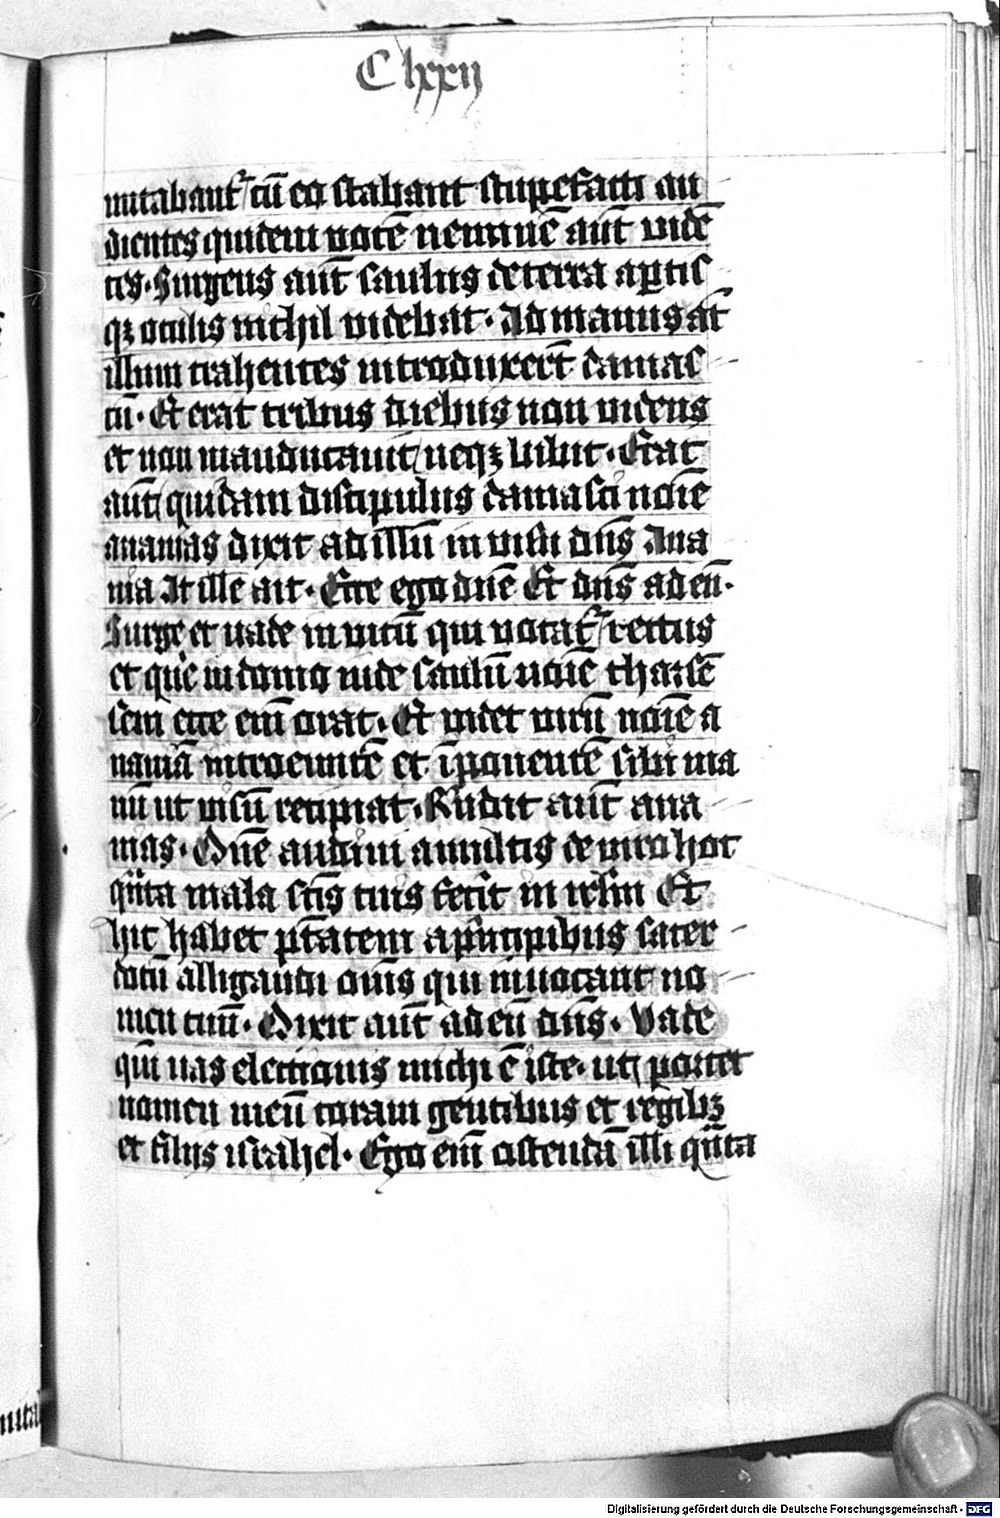 C lxxij
mitabant᷑ cū eo stabant stupefacti au
dientes quidem vocē neminē aūt vidē
tes. Surgens aūt saulus de terra aꝑtis
qꝫ oculis nichil videbat. Ad manus aūt
illum trahentes introduxerūt damas
cū. Et erat tribus diebus non videns
et non manducauit neqꝫ bibit. Erat
aūt quidam discipulus damasci noīe
ananias dixit ad illū in visu dn̄s Ana
nia At ille ait. Ecce ego dn̄e Et dn̄s ad eū.
Surge et uade in vicū qui vocat᷑ rectus
et que in domo iude saulū noīe tharsē
sem ecce em̄ orat. Et videt virū noīe a
naniā introeuntē et īponentē sibi ma
nū ut visū recipiat. Rn̄dit aūt ana
nias. Dn̄e audiui a multis de viro hoc
qn̄ta mala scīs tuis fecit in irlm̄ Et
hic habet ptātem a pn̄cipibus sacer
dotū alligandi om̄s qui inuocant no
men tuū. Dixit aūt ad eū dn̄s. Vade
qm̄ uas electionis michi ē iste. ut portet
nomen meū coram gentibus et regibꝫ
et filijs israhel. Ego em̄ ostendā illi qn̄ta
mita
Digitalisierung gefördert durch die Deutsche Forschungsgemeinschaft - DFG